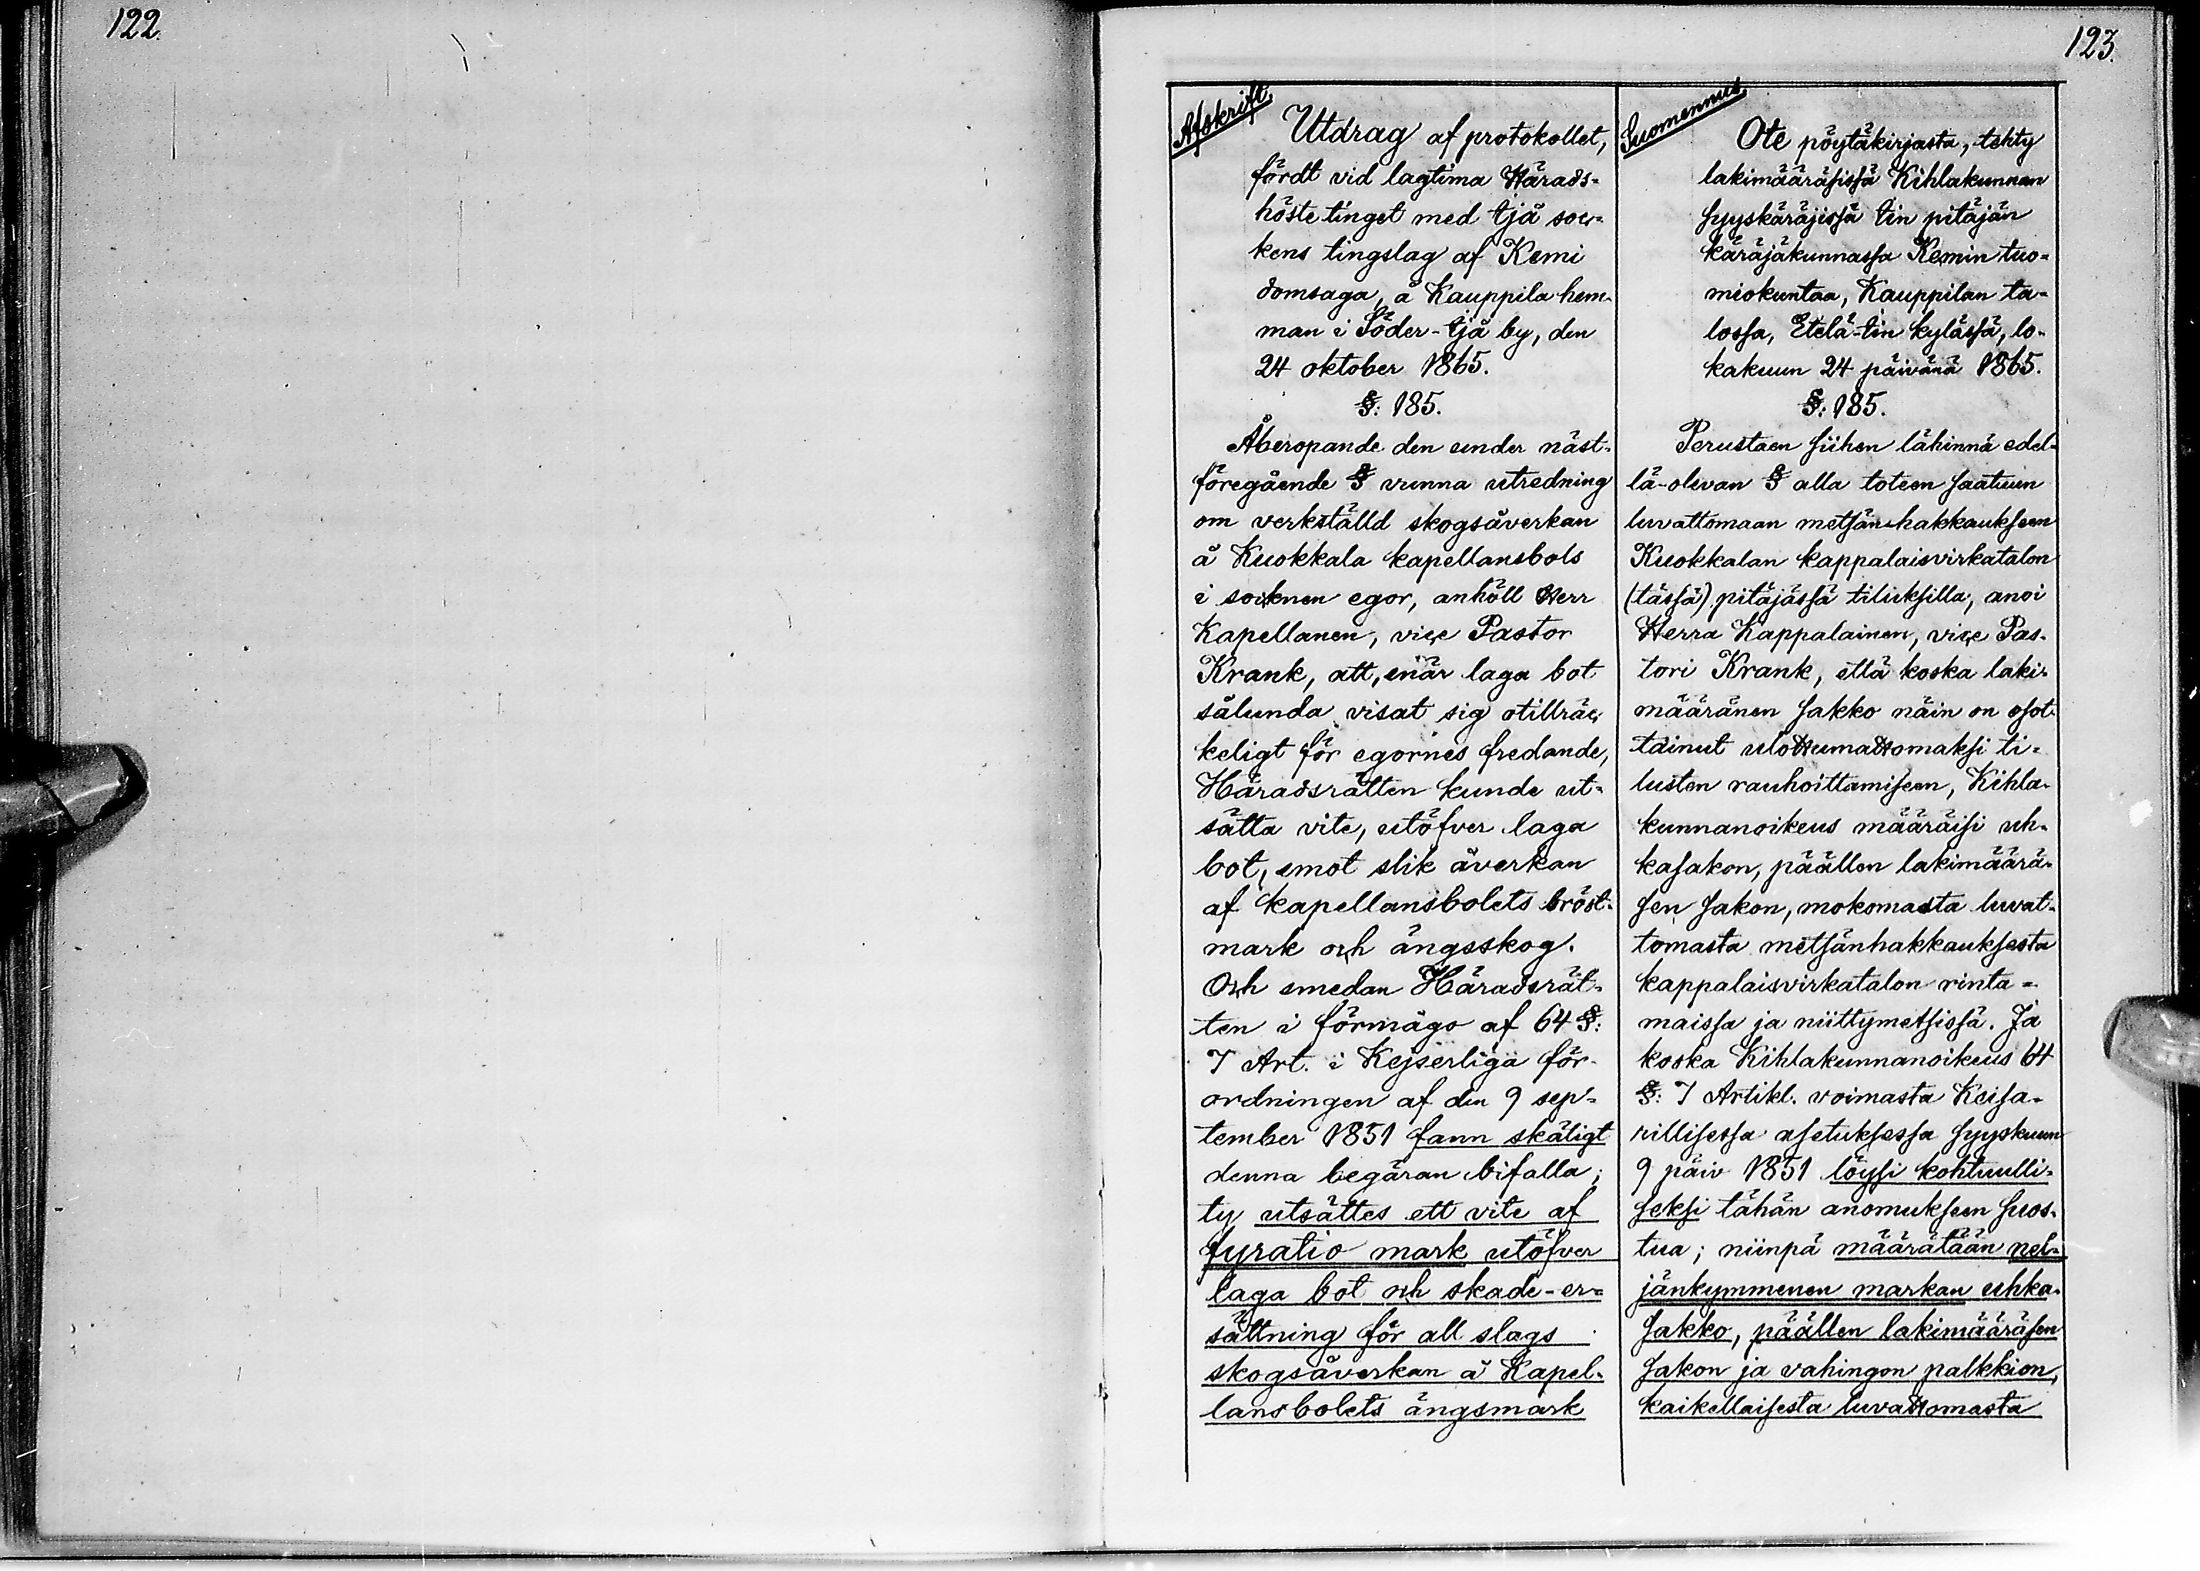 122.
123.
Afskrift.
Utdrag af protokollet,
fördt vid lagtima Härads-
höste tinget med Ijå soc-
kens tingslag af Kemi
domsaga, å Kauppila hem-
man i Söder-Ijå by, den
24 oktober 1865.
§: 185.
Åberopande den under näst-
föregående § vunna utredning
om verkställd skogsåverkan
å Kuokkala kapellansbols
i socknen egor, anhöll Herr
Kapellanen, vice Pastor
Krank, att, enär laga bot
sålunda visat sig otillräc-
keligt för egornes fredande,
Häradsrätten kunde ut-
sätta vite, utöfver laga
bot, emot slik åverkan
af kapellansbolets bröst-
mark och ängsskog.
Och emedan Häradsrät-
ten i förmågo af 64 §:
7 Art. i Kejserliga för-
ordningen af den 9 sep-
tember 1851 fann skäligt
denna begäran bifalla;
ty utsättes ett vite af
fyratio mark utöfver
laga bot och skade-er-
sättning för all slags
skogsåverkan å Kapel-
lansbolets ängsmark
Suomennus.
Ote pöytäkirjasta, tehty
lakimääräsissä Kihlakunnan
syyskäräjissä Iin pitäjän
käräjäkunnassa Kemin tuo-
miokuntaa, Kauppilan ta-
lossa, Etelä-Iin kylässä, lo-
kakuun 24 päivänä 1865.
§: 185.
Perustaen siihen lähinnä edel-
lä-olevan § alla toteen saatuun
luvattomaan metsän-hakkaukseen
Kuokkalan kappalaisvirkatalon
(tässä) pitäjässä tiliuksilla, anoi
Herra Kappalainen, vice Pas-
tori Krank, että koska laki-
määränen sakko näin on osot-
tainut ulottumattomaksi ti-
lusten rauhoittamiseen, Kihla-
kunnanoikeus määräisi uh-
kasakon, päällen lakimäärä-
sen sakon, mokomasta luvat-
tomasta metsänhakkauksesta
kappalaisvirkatalon rinta-
maissa ja niittymetsissä. Ja
koska Kihlakunnanoikeus 64
§: 7 Artikl. voimasta Keisa-
rillisessa asetuksessa syyskuun
9 päiv 1851 löysi kohtuulli-
seksi tähän anomukseen suos-
tua; niinpä määrätään nel-
jänkymmenen markan uhka-
sakko, päällen lakimääräsen
sakon ja vahingon palkkion,
kaikellaisesta luvattomasta